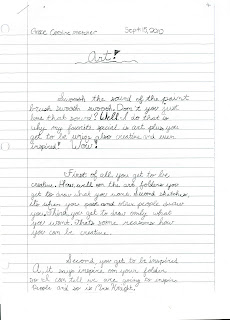 Sept 15, 2010
Art!
Swoosh the sound of the paint
brush swoosh swoosh. Don't you just
love that sound? Well I do that is
why my favorite special is art plus you
get to be creative and even
inspired! Wow!
First of all you get to be
creative. How, well on the art folders you
get to draw what you want. Second sketches,
its when you pose and other people draw
you. Third you get to draw only what
you want. Thats some reasons how
you can be creative.
Second you get to be inspired
A. it says inspire on your folder
so I can tell we are going to inspire
people and so is Mrs. Knight.